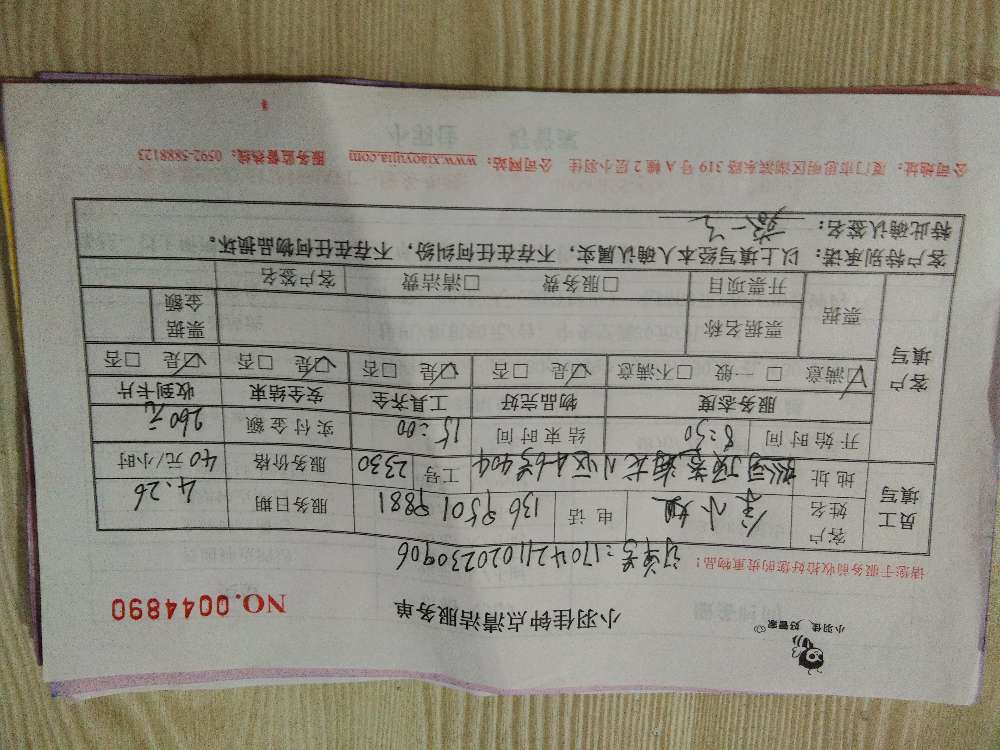 小羽佳 好管家
小羽佳钟点清洁服务单
NO.0044890
请您于服务前收拾好您的贵重物品！
订单号:170421102023090６
员工填写
客户姓名 余小姐 电话 136 9501 9881 服务日期 4.26
地址 46号404 工号 2330 服务价格 40元/小时
开始时间 8:30 结束时间 15:00 实付金额 260元
客户填写
服务态度 物品完好 工具齐全 安全结束 收到卡片
☑满意 □一般 □不满意 ☑是 □否 ☑是 □否 ☑是 □否 ☑是 □否
票据 票据名称 票据金额
开票项目 □服务费 □清洁费 客户签名
客户特别承诺：以上填写经本人确认属实，不存在任何纠纷，不存在任何物品损坏。
特此确认签名：
公司地址：厦门市思明区湖滨东路 319 号 A 幢 2 层小羽佳 公司网站：www.xiaoyujia.com 服务监督热线：0592-5888123